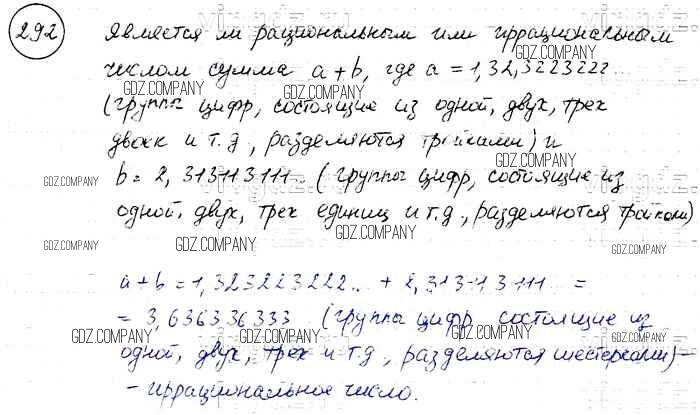 292 Является ли рациональным или иррациональным
числом сумма a + b, где a = 1,32,3223222...
(группы цифр, состоящие из одной, двух, трех
двоек и т.д, разделяются тройками) и
b = 2,313113111... (группы цифр, состоящие из
одной, двух, трех единиц и т.д, разделяются тройками)
a + b = 1,323223222... + 2,313113111... =
= 3,636336333 (группы цифр, состоящие из
одной, двух, трех и т.д, разделяются шестерками) -
- иррациональное число.
GDZ.COMPANY
GDZ.COMPANY
GDZ.COMPANY
GDZ.COMPANY
GDZ.COMPANY
GDZ.COMPANY
GDZ.COMPANY
GDZ.COMPANY
GDZ.COMPANY
GDZ.COMPANY
GDZ.COMPANY
GDZ.COMPANY
GDZ.COMPANY
GDZ.COMPANY